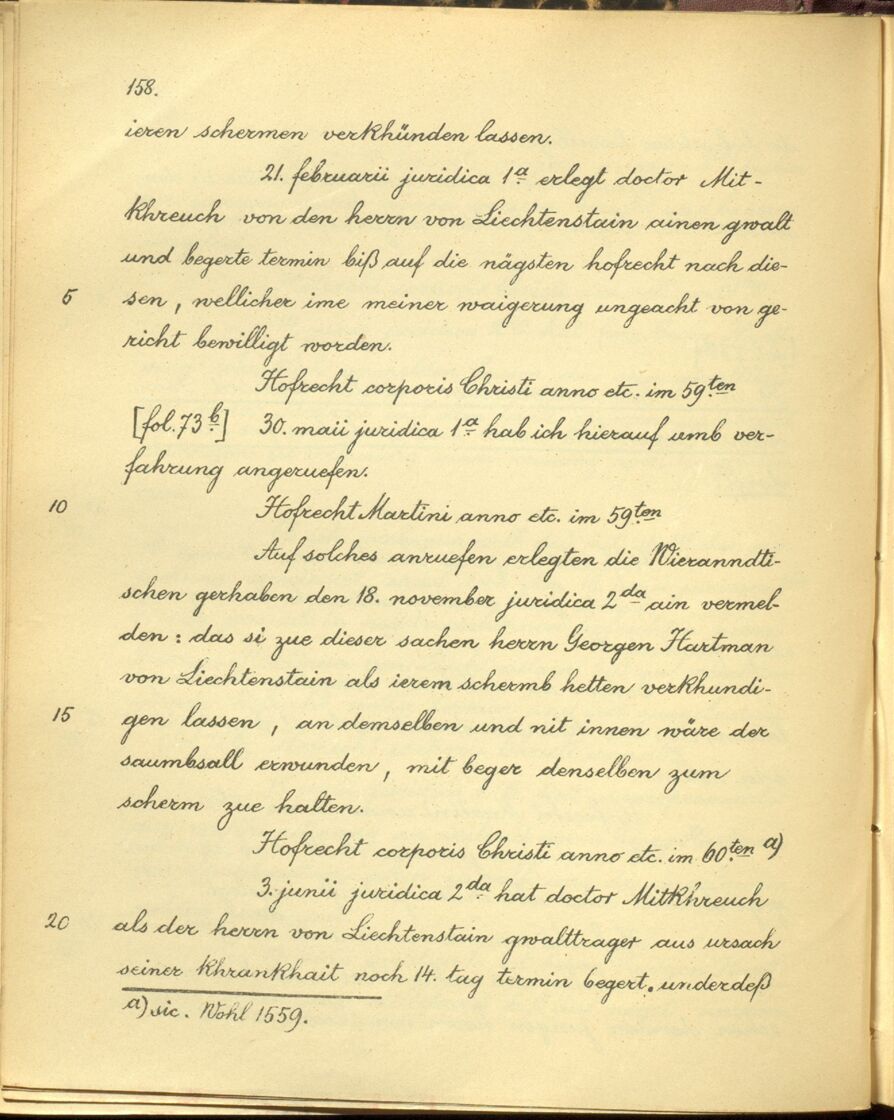 158.
ieren schermen verkhünden lassen.
21. februarii juridica 1a erlegt doctor Mit-
khreuch von den herrn von Liechtenstain ainen gwalt
und begerte termin biß auf die nägsten hofrecht nach die-
5 sen, wellicher ime meiner waigerung ungeacht von ge-
richt bewilligt worden.
Hofrecht corporis Christi anno etc. im 59ten
[fol. 73b] 30. maii juridica 1a hab ich hierauf umb ver-
fahrung angeruefen.
10 Hofrecht Martini anno etc. im 59ten
Auf solches anruefen erlegten die Wieranndti-
schen gerhaben den 18. november juridica 2da ain vermel-
den: das si zue dieser sachen herrn Georgen Hartman
von Liechtenstain als ierem schermb hetten verkhundi-
15 gen lassen, an demselben und nit innen wäre der
saumbsall erwunden, mit beger denselben zum
scherm zue halten.
Hofrecht corporis Christi anno etc. im 60ten a)
3. junii juridica 2da hat doctor Mitkhreuch
20 als der herrn von Liechtenstain gwalttrager aus ursach
seiner khrankhait noch 14. tag termin begert. underdeß
a) sic. Wohl 1559.